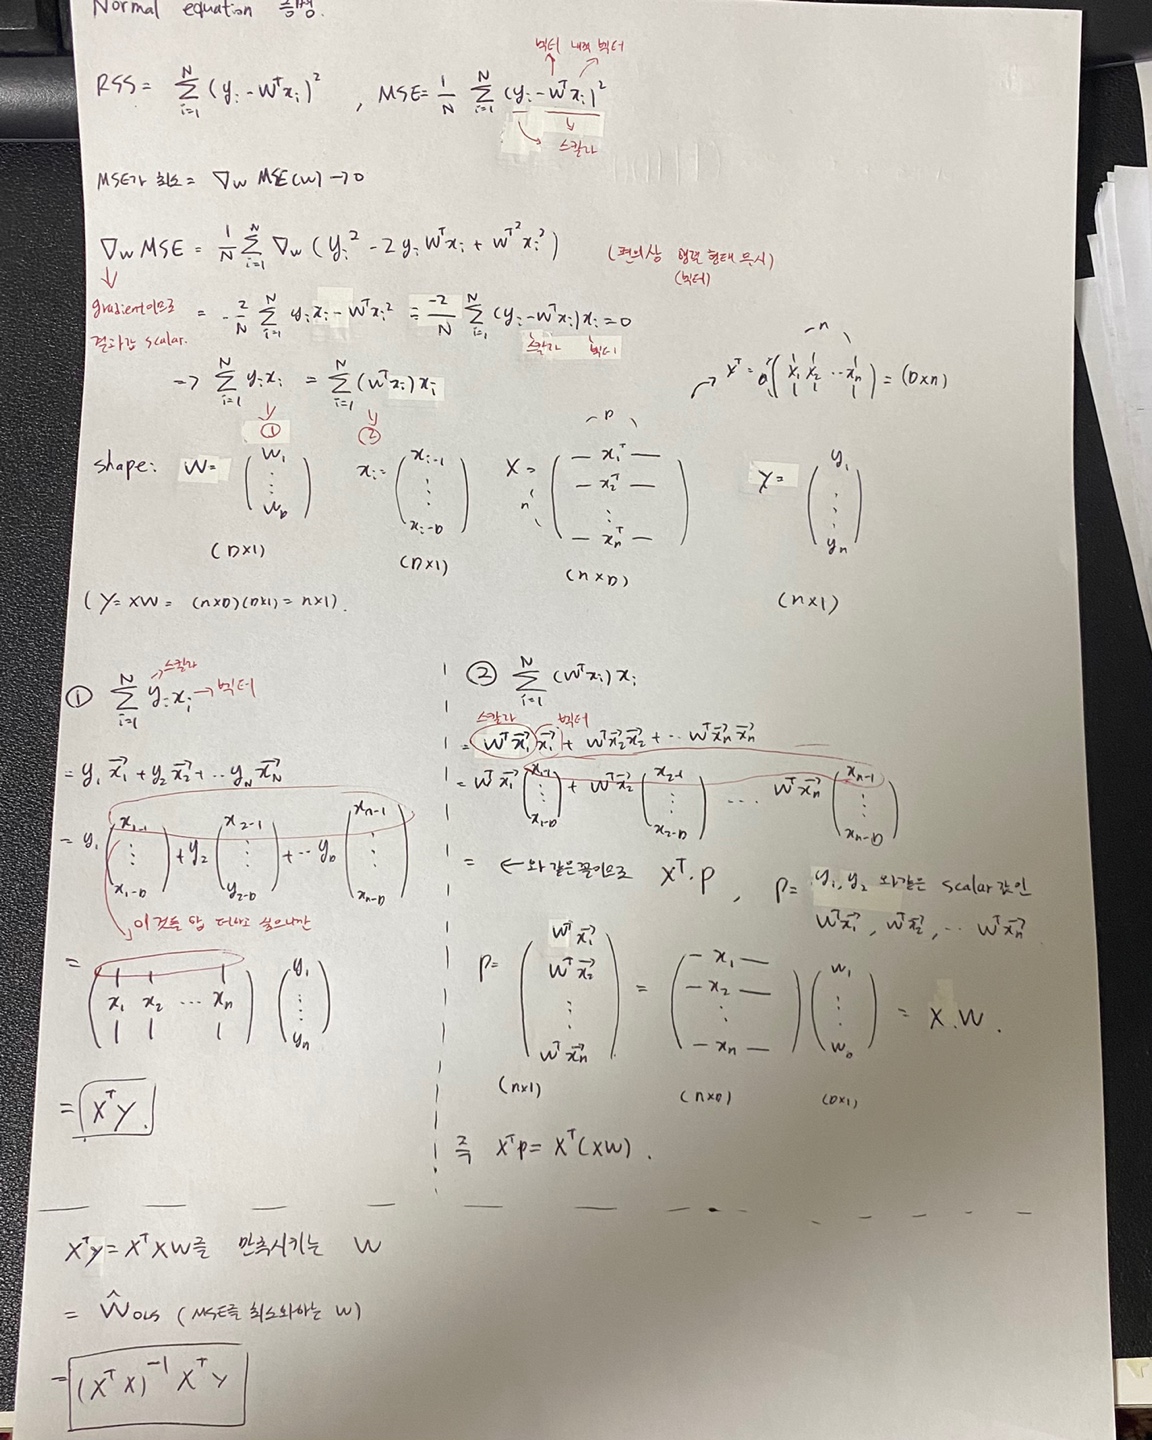 Normal equation 증명.
RSS = Σ_{i=1}^{N} (y_i - W^T x_i)^2 , MSE = 1/N Σ_{i=1}^{N} (y_i - W^T x_i)^2
벡터 내적 벡터
스칼라
MSE가 최소 = ∇_W MSE(W) → 0
∇_W MSE = 1/N Σ_{i=1}^{N} ∇_W (y_i^2 - 2y_i W^T x_i + W^{T2} x_i^2)
(편의상 행렬 형태 무시)
(벡터)
gradient이므로
결과값 scalar.
= -2/N Σ_{i=1}^{N} y_i x_i - W^T x_i^2 = -2/N Σ_{i=1}^{N} (y_i - W^T x_i) x_i = 0
스칼라 벡터
→ Σ_{i=1}^{N} y_i x_i = Σ_{i=1}^{N} (W^T x_i) x_i
① ②
X^T = D ( x_1 x_2 ·· x_n ) = (D×n)
n
shape: W = ( w_1 ⋮ w_D ) x_i = ( x_{i-1} ⋮ x_{i-D} ) X = ( — x_1^T — — x_2^T — ⋮ — x_n^T — ) Y = ( y_1 ⋮ y_n )
D
n
(D×1) (D×1) (n×D) (n×1)
( Y = XW = (n×D)(D×1) = n×1 ).
① Σ_{i=1}^{N} y_i x_i
스칼라
벡터
= y_1 x⃗_1 + y_2 x⃗_2 + ·· y_N x⃗_N
= y_1 ( x_{1-1} ⋮ x_{1-D} ) + y_2 ( x_{2-1} ⋮ y_{2-D} ) + ·· y_D ( x_{n-1} ⋮ x_{n-D} )
이것들 다 더하고 싶으니깐
= ( x_1 x_2 ··· x_n ) ( y_1 ⋮ y_n )
= X^T Y.
② Σ_{i=1}^{N} (W^T x_i) x_i
스칼라 벡터
= W^T x⃗_1 x⃗_1 + W^T x⃗_2 x⃗_2 + ·· W^T x⃗_n x⃗_n
= W^T x⃗_1 ( x_{1-1} ⋮ x_{1-D} ) + W^T x⃗_2 ( x_{2-1} ⋮ x_{2-D} ) ···· W^T x⃗_n ( x_{n-1} ⋮ x_{n-D} )
= ← 와 같은 꼴이므로 X^T · P , P = y_1, y_2 와 같은 scalar 값인
W^T x⃗_1, W^T x⃗_2, ·· W^T x⃗_n
P = ( W^T x⃗_1 W^T x⃗_2 ⋮ W^T x⃗_n ) = ( — x_1 — — x_2 — ⋮ — x_n — ) ( w_1 ⋮ w_D ) = X.W.
(n×1) (n×D) (D×1)
즉 X^T P = X^T (XW).
X^T y = X^T X W를 만족시키는 W
= Ŵ_OLS (MSE를 최소화하는 W)
= (X^T X)^{-1} X^T Y